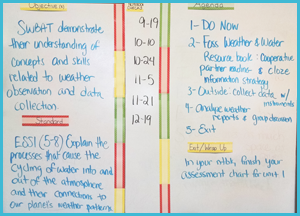 Objective
SWBAT demonstrate
their understanding of
concepts and skills
related to weather
observation and data
collection.
Standard
ESS1 (5-8) Explain the
processes that cause the
cycling of water into and
out of the atmosphere
and their connections to
our planet's weather patterns.
9-19
10-10
10-24
11-5
11-21
12-19
Agenda
1- DO NOW
2- Foss Weather & Water
Resource book: Cooperative
partner reading & cloze
information strategy
3- Outside: collect data w/
instruments
4- Analyze weather
reports & group discussion
5- Exit
Exit/Wrap Up
In your ntbk, finish your
assessment chart for unit 1